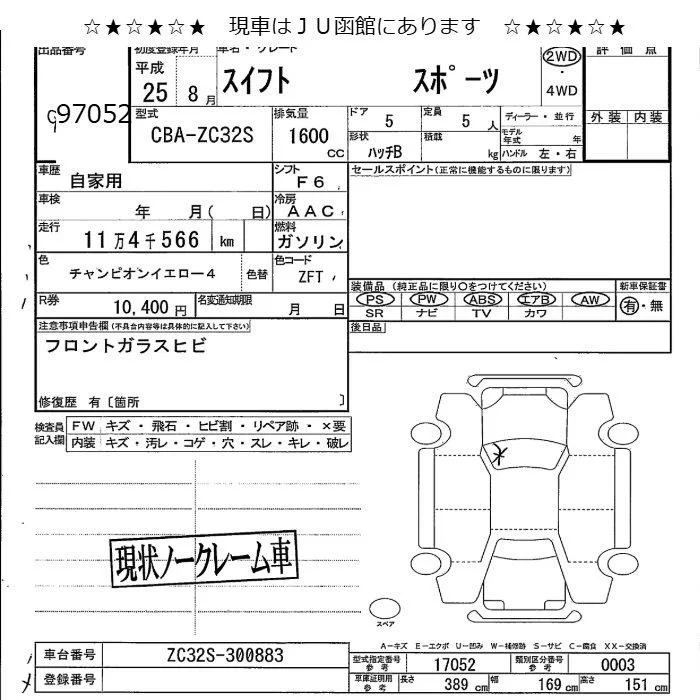 ☆★☆★☆★　現車はＪＵ函館にあります　☆★☆★☆★
出品番号 初度登録年月 車名・グレード 2WD・4WD 評価点
平成 25 8月 スイフト スポーツ
97052
型式 CBA-ZC32S 排気量 1600 cc
ドア 5 定員 5人 ディーラー・並行 外装 内装
形状 ハッチB 積載 kg モデル年式 年 ハンドル 左・右
車歴 自家用 シフト F6 セールスポイント(正常に機能するものに限ります)
車検 年 月( 日) 冷房 AAC
走行 11万4千566 km 燃料 ガソリン
色 チャンピオンイエロー4 色替 色コード ZFT
装備品 (純正品に限り○をつけてください) 新車保証書
PS PW ABS エアB AW 有・無
SR ナビ TV カワ
R券 10,400円 名変通知期限 月 日
後日品
注意事項申告欄(不具合内容等は具体的に記入して下さい)
フロントガラスヒビ
修復歴 有〔箇所 〕
検査員記入欄 FW キズ・飛石・ヒビ割・リペア跡・×要
内装 キズ・汚レ・コゲ・穴・スレ・キレ・破レ
現状ノークレーム車
スペア
A-キズ E-エクボ U-凹み W-補修跡 S-サビ C-腐食 XX-交換済
車台番号 ZC32S-300883
型式指定番号参考 17052 類別区分番号参考 0003
登録番号
車庫証明用参考 長さ 389 cm 幅 169 cm 高さ 151 cm